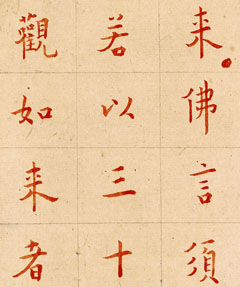 来佛言須
若以三十
觀如来者